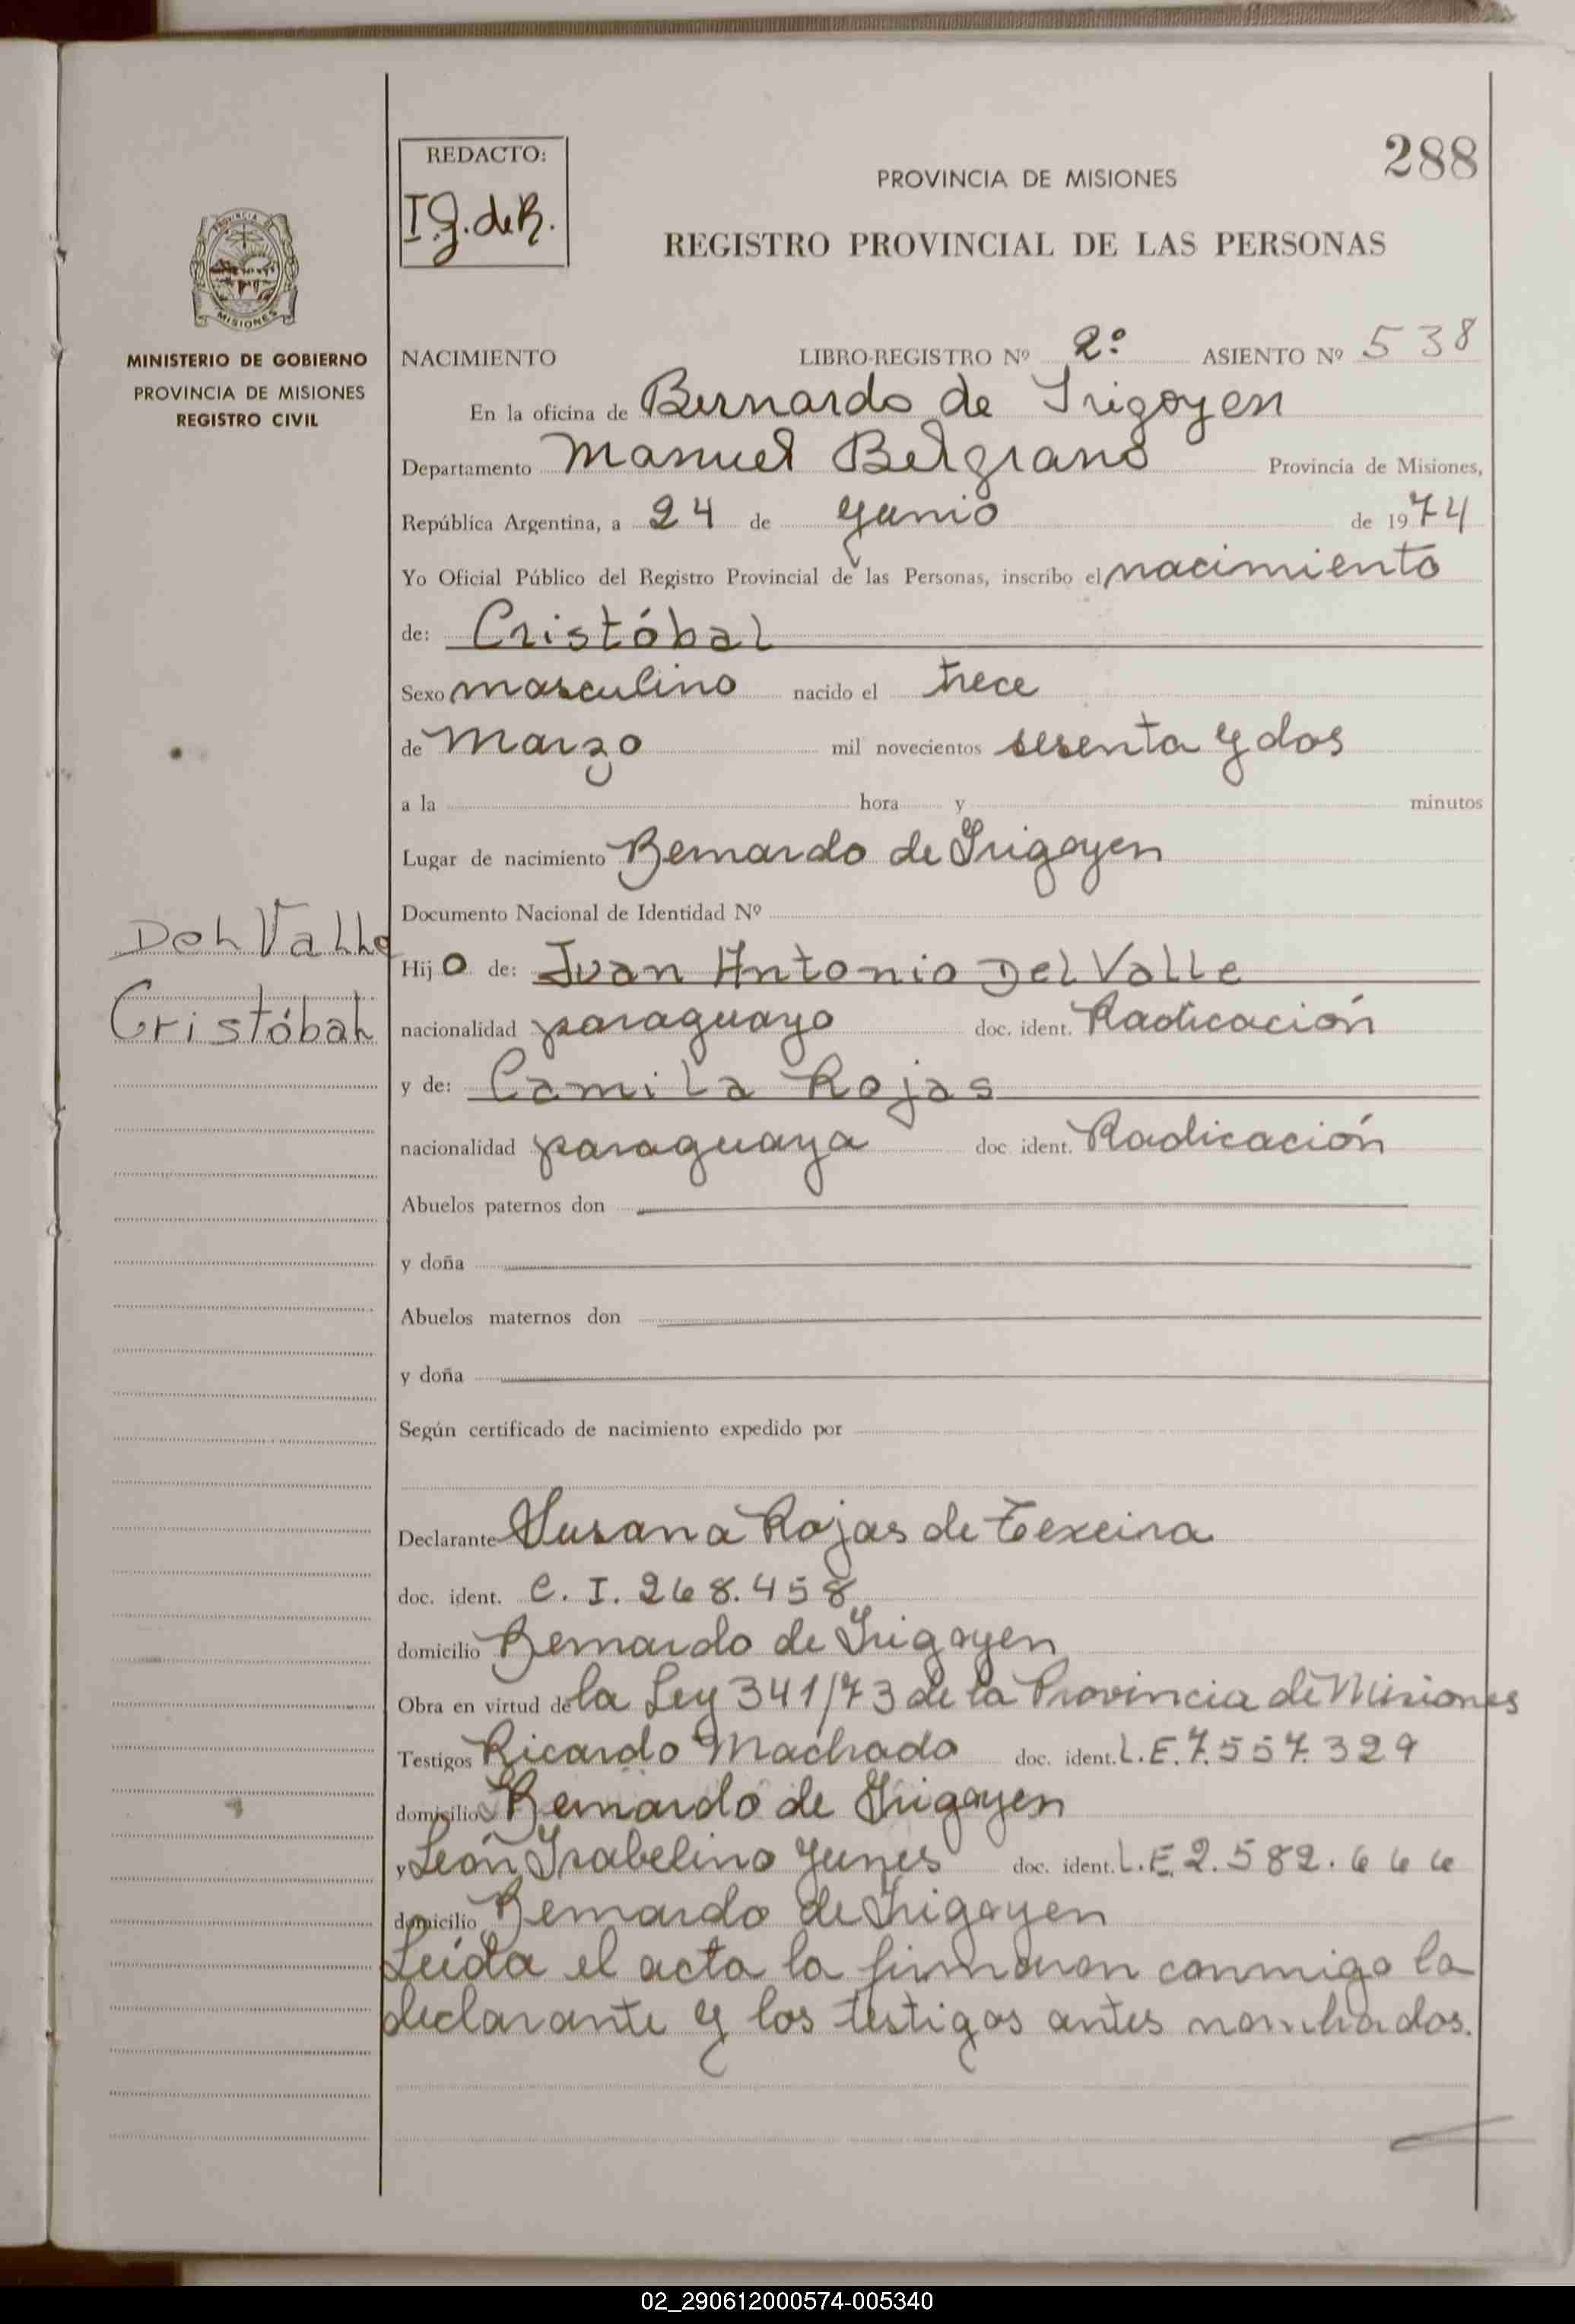 288
REDACTO:
I.G. de R.
PROVINCIA DE MISIONES
REGISTRO PROVINCIAL DE LAS PERSONAS
MISIONES
MINISTERIO DE GOBIERNO
PROVINCIA DE MISIONES
REGISTRO CIVIL
Del Valle
Cristóbal
NACIMIENTO LIBRO-REGISTRO Nº 2º ASIENTO Nº 538
En la oficina de Bernardo de Irigoyen
Departamento Manuel Belgrano Provincia de Misiones,
República Argentina, a 24 de Junio de 1974
Yo Oficial Público del Registro Provincial de las Personas, inscribo el nacimiento
de: Cristóbal
Sexo masculino nacido el trece
de Marzo mil novecientos sesenta y dos
a la hora y minutos
Lugar de nacimiento Bernardo de Irigoyen
Documento Nacional de Identidad Nº
Hijo de: Juan Antonio Del Valle
nacionalidad paraguayo doc. ident. Radicación
y de: Camila Rojas
nacionalidad paraguaya doc. ident. Radicación
Abuelos paternos don
y doña
Abuelos maternos don
y doña
Según certificado de nacimiento expedido por
Declarante Susana Rojas de Texeira
doc. ident. C. I. 268.458
domicilio Bernardo de Irigoyen
Obra en virtud de la Ley 341/73 de la Provincia de Misiones
Testigos Ricardo Machado doc. ident. L.E. 7.557.329
domicilio Bernardo de Irigoyen
y León Isabelino Yunes doc. ident. L.E. 2.582.666
domicilio Bernardo de Irigoyen
Leída el acta la firmaron conmigo la
declarante y los testigos antes nombrados.
02_290612000574-005340